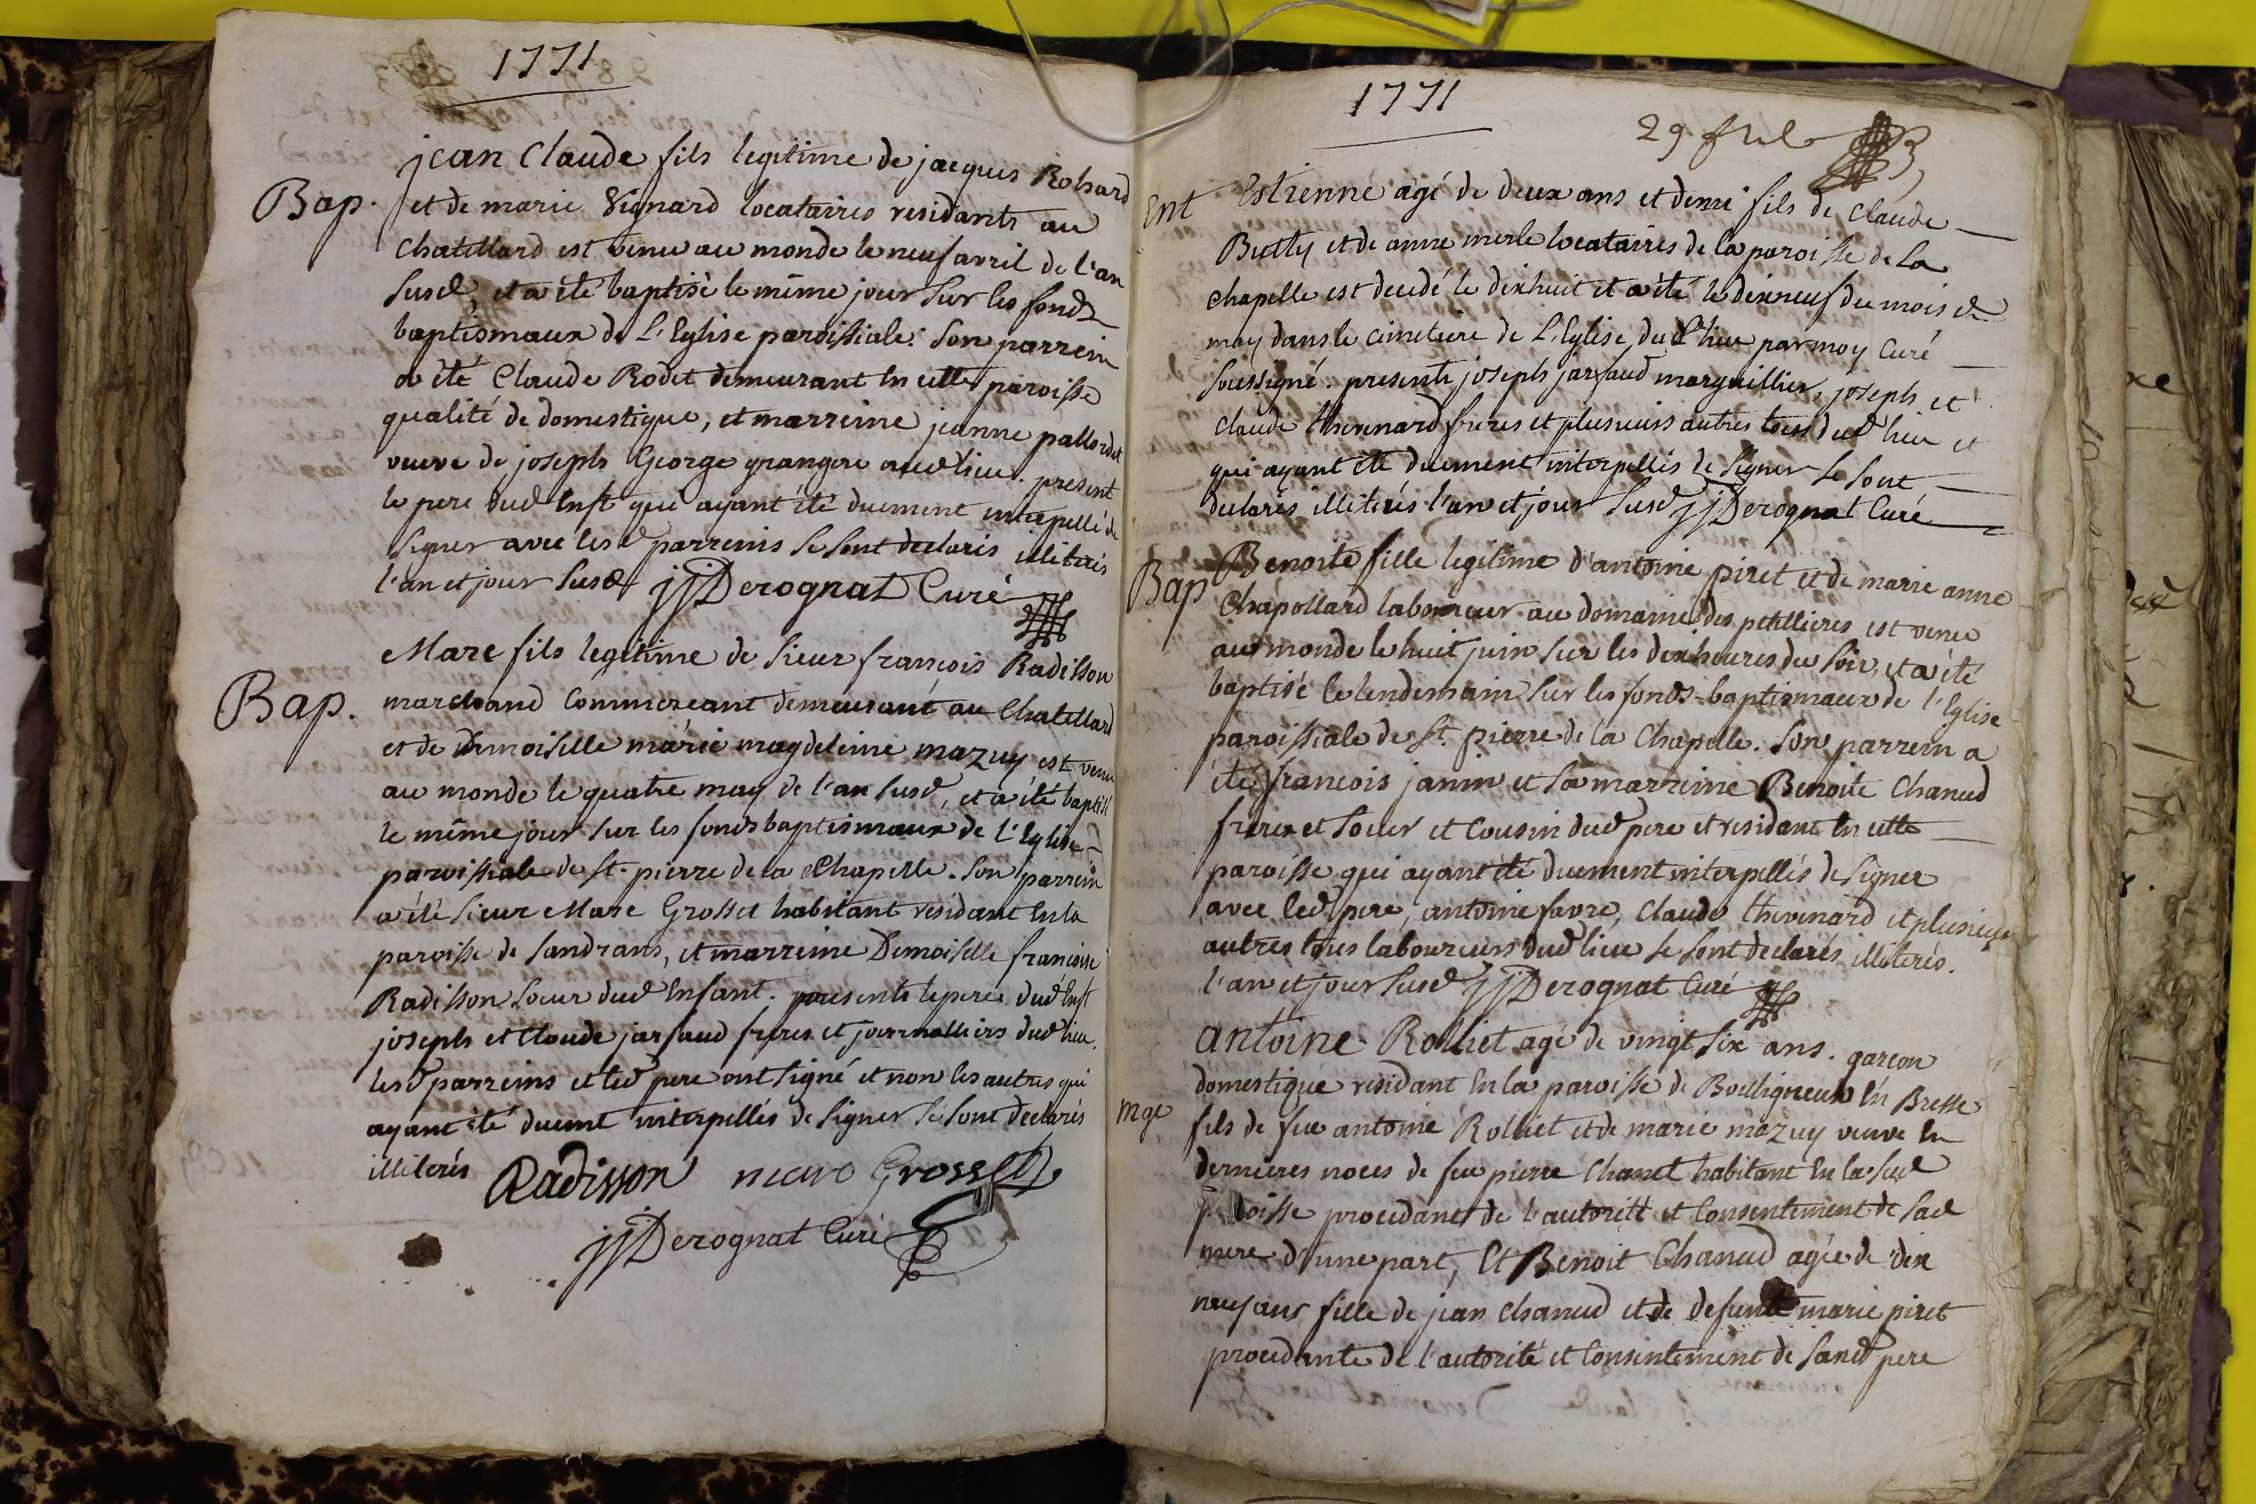 1771
Bap.
jean Claude fils legitime de jacques Rohard
et de marie Vignard locataires residants au
Chatillard est venu au monde le neuf avril de l'an
susd, et a été baptisé le même jour sur les fonds
baptismaux de L'Eglise paroissiale. Son parrein
a été Claude Rodet demeurant en cette paroisse
qualité de domestique, et marreine jeanne pallordet
veuve de joseph George grangere aud lieu. present
le pere dud Enft qui ayant été duement interpellé de
signer avec lesd parreins se sont declarés illiterés
l'an et jour susd jjDerognat Curé
Bap.
Marc fils legitime de sieur françois Radisson
marchand Commerceant demeurant au Chatillard
et de Demoiselle marie magdeleine mazuy est venu
au monde le quatre may de l'an susd, et a été baptisé
le même jour sur les fonds baptismaux de l'Eglise
paroissiale de st. pierre de la Chapelle. Son parrein
a été sieur Marc Grosset habitant residant en la
paroisse de sandrans, et marreine Demoiselle françoise
Radisson soeur dud Enfant. presents le pere dud Enft
joseph et Claude jarsaud freres et journalliers dud lieu.
lesd parreins et led pere ont signé et non les autres qui
ayant été duemt interpellés de signer se sont declarés
illiterés Radisson marc Grosset
jjDerognat Curé
1771
29
Ent
Estienne agé de deux ans et demi fils de Claude
Butty et de anne merle locataires de la paroisse de La
Chapelle est decedé le dix huit et a été le dix neuf du mois de
may dans le cimetiere de L'Eglise dud lieu par moy Curé
soussigné. presents joseph jarsaud marguillier, joseph et
Claude thevenard freres et plusieurs autres tous dud lieu et
qui ayant été duement interpellés de signer se sont
declarés illiterés l'an et jour susd jjDerognat Curé
Bap
Benoite fille legitime d'antoine piret et de marie anne
Chapollard laboureur au domaine des petillieres est venue
au monde le huit juin sur les dix heures du soir, et a été
baptisé le lendemain sur les fonds baptismaux de l'Eglise
paroissiale de st. pierre de la Chapelle. Son parrein a
été françois janin et sa marreine Benoite Chanud
frere et soeur et Cousin dud pere et residant en cette
paroisse qui ayant été duement interpellés de signer
avec led pere, antoine favre, Claude thevenard et plusieurs
autres tous laboureurs dud lieu se sont declarés illiterés.
l'an et jour susd jjDerognat Curé
mge
antoine Rolliet agé de vingt six ans. garçon
domestique residant en la paroisse de Boulligneux En Bresse
fils de feu antoine Rolliet et de marie mazuy veuve en
dernieres noces de feu pierre Chanel habitant en la sud
paroisse procedant de l'autorité et Consentement de sad
mere d'une part, Et Benoit Chanud agée de dix
neuf ans fille de jean Chanud et de defunte marie piret
procedante de l'autorité et Consentement de sond pere